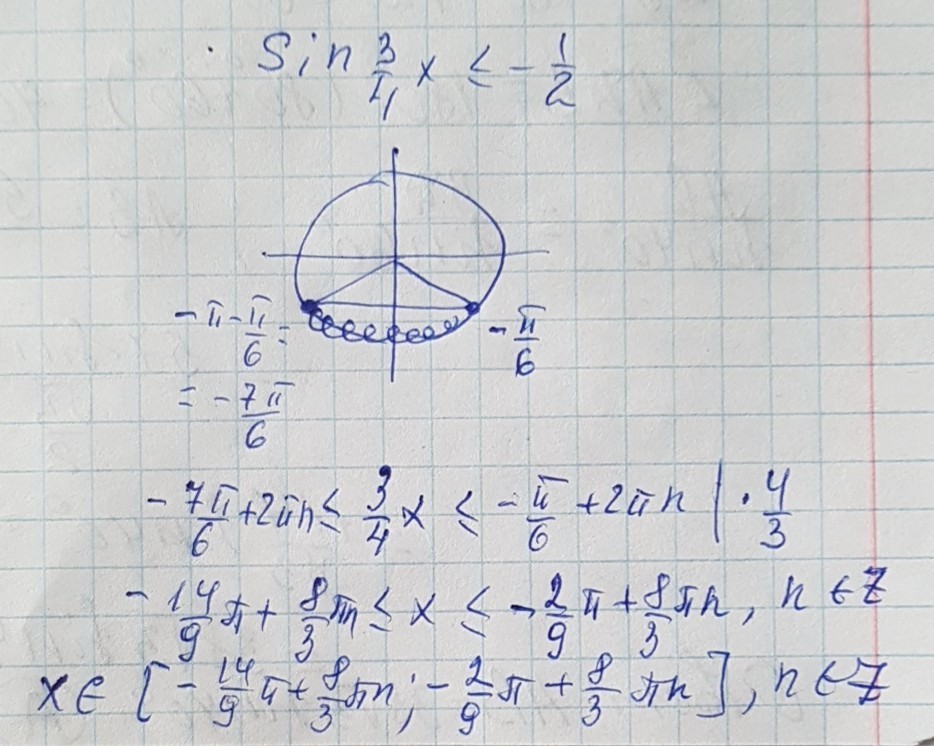 Sin 3/4 x ≤ - 1/2
-π - π/6 =
- π/6
= - 7π/6
- 7π/6 + 2πn ≤ 3/4 x ≤ - π/6 + 2πn | · 4/3
- 14/9 π + 8/3 πn ≤ x ≤ - 2/9 π + 8/3 πn, n ∈ Z
x ∈ [- 14/9 π + 8/3 πn; - 2/9 π + 8/3 πn], n ∈ Z